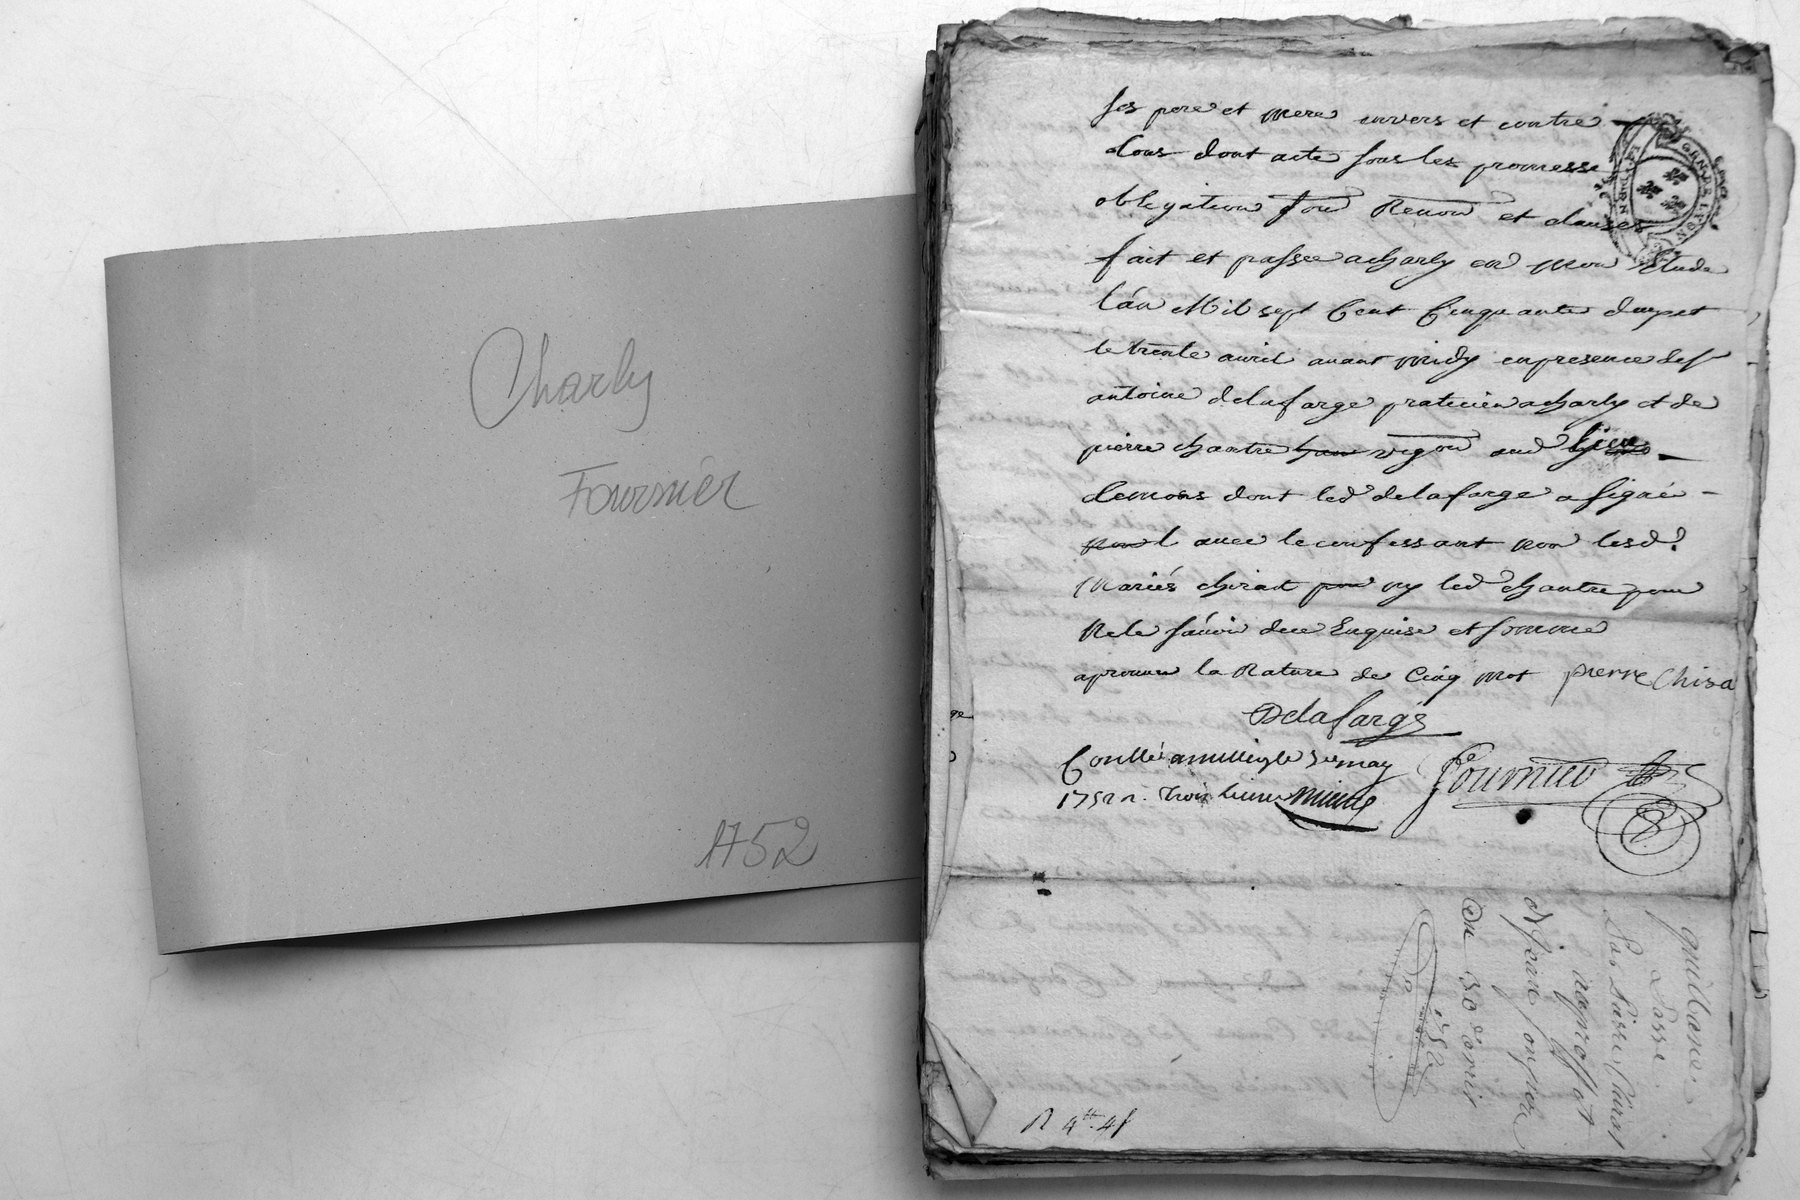 Charly
Fournier
1752
ses pere et mere envers et contre
tous dont acte sous les promesse
obligation sou Renon et clauses
fait et passée a charly en mon Etude
l'an Mil sept Cent Cinquante deux et
le trente avril avant midy en presence de sr
antoine delafarge praticien a charly et de
pierre chantre vigon aud
lemons dont led delafarge a signé
avec le confessant non lesd.
Mariés chirat ny led chantre pour
Ne le sávoir de ce Enquise et somme
aprouvu la Rature de Cinq mot pierre Chira
Delafarge
Conllé a millery le may
1752 R. trois livres
Fournier
quittance
passé
par pierre Chirat
a
Du 30 d'avril
1752
R 4tt 4s